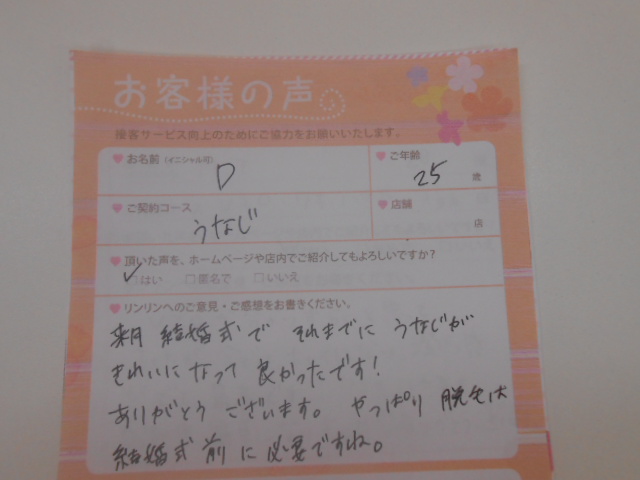 お客様の声
接客サービス向上のためにご協力をお願いいたします。
お名前（イニシャル可）
D
ご年齢
25 歳
ご契約コース
うなじ
店舗
店
頂いた声を、ホームページや店内でご紹介してもよろしいですか？
✓□はい □匿名で □いいえ
リンリンへのご意見・ご感想をお書きください。
来月 結婚式で それまでに うなじが
きれいになって 良かったです！
ありがとう ございます。 やっぱり 脱毛は
結婚式 前 に 必要ですね。